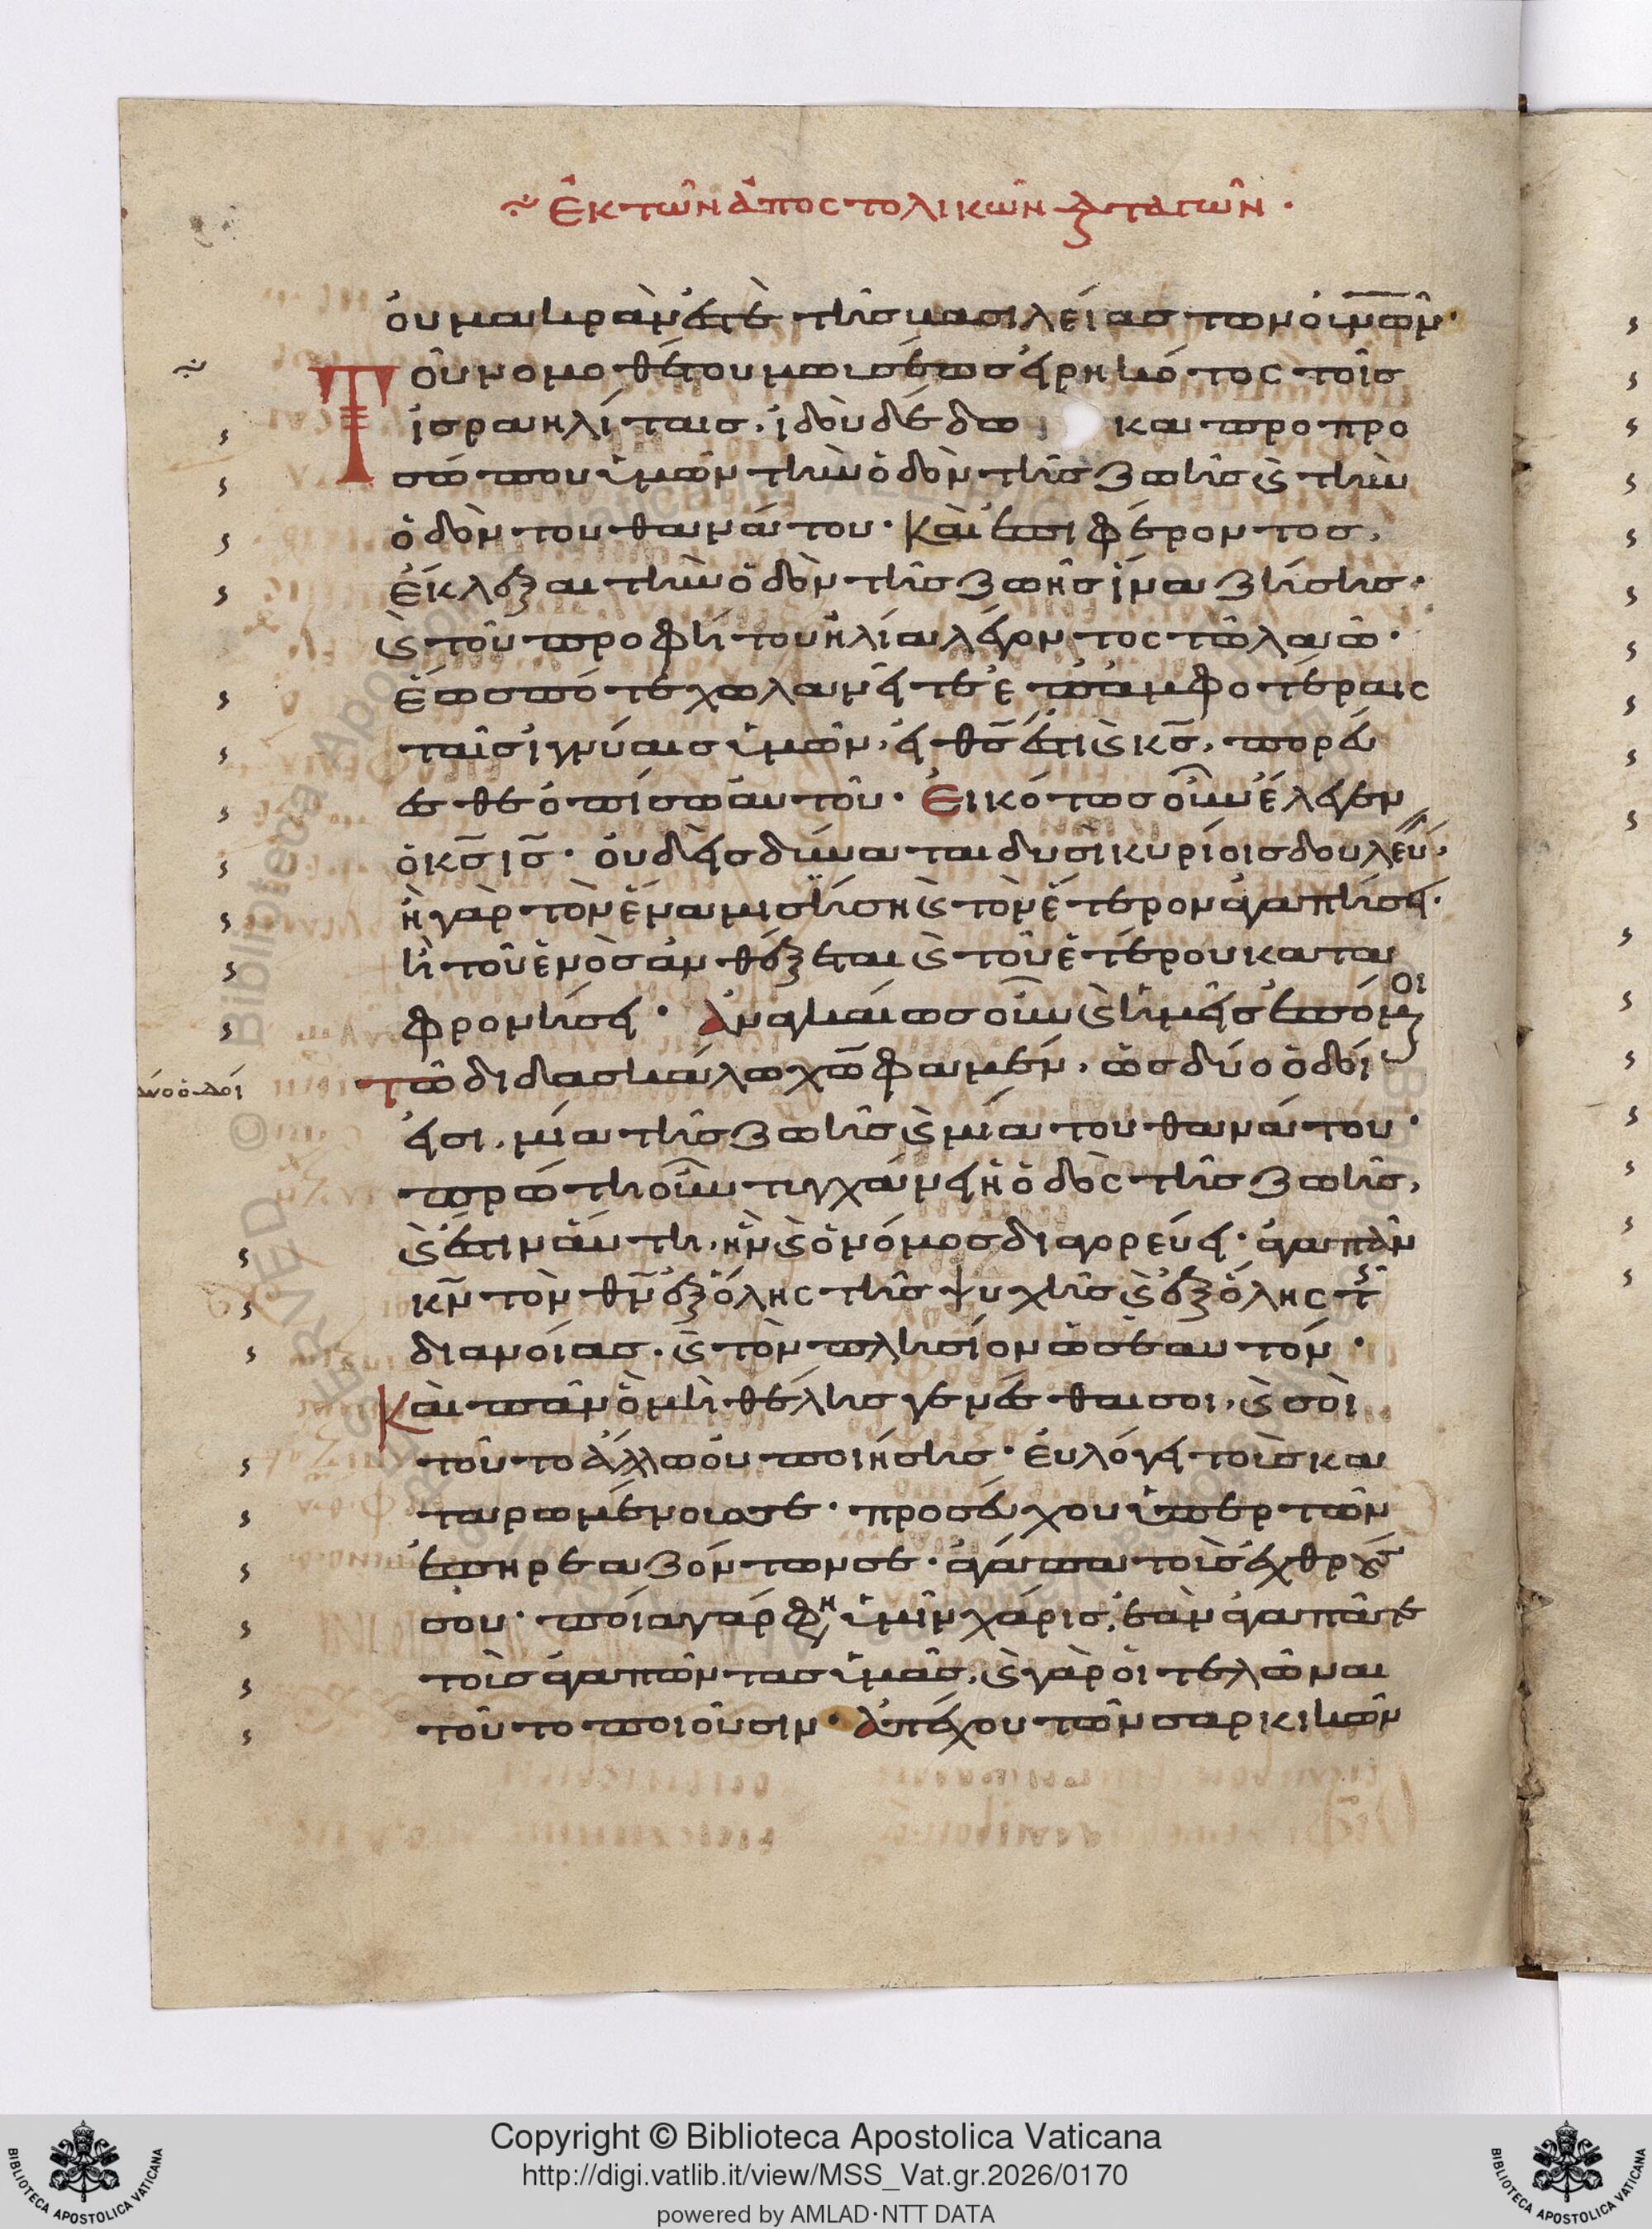 Ἐκ τῶν ἀποστολικῶν διαταγῶν·
οὐ μακρὰν ἐστὲ τῆς βασιλείας τῶν οὐνῶν·
Τοῦ νομοθέτου μωισέως εἰρηκότος τοῖς
ἰσραηλίταις, ἰδοὺ δέδω κα προ προ
σώπου ὑμῶν τὴν ὁδὸν τῆς ζωῆς ϗ τὴν
ὁδὸν του θανάτου· Καὶ ἐπιφέροντος,
ἔκλεξαι τὴν ὁδὸν τῆς ζωῆς ἵνα ζήσης·
ϗ τοῦ προφήτου ἠλία λέγοντος τῶ λαῶ·
ἕως πότε χωλανεῖτε ἐπ' ἀμφοτέραις
ταῖς ἰγνύαις ὑμῶν, εἰ θς ἐστι ϗ κς, πορεύ
εσθε ὀπίσω αὐτοῦ· Εἰκότως οὖν ἔλεγεν
ὁ κς ις· οὐδεὶς δύναται δυσὶ κυρίοις δουλεύ,
ἢ γὰρ τὸν ἕνα μισήση ϗ τὸν ἕτερον ἀγαπήσει·
ἢ τοῦ ἑνὸς ἀνθέξεται ϗ τοῦ ἑτέρου κατα
φρονήσει· Ἀναγκαίως οὖν ϗ ἡμεῖς ἑπόμενοι
τῶ διδασκάλω χω φαμὲν, ὡς δύο ὁδοί
δύο ὁδοί
εἰσι, μία τῆς ζωῆς ϗ μία του θανάτου·
πρώτη οὖν τυγχάνει ἡ ὁδὸς τῆς ζωῆς,
ϗ ἔστιν αὕτη, ἣν ϗ ὁ νόμος διαγορεύει· ἀγαπᾶν
κν τὸν θν ἐξ ὅλης τῆς ψυχῆς ϗ ἐξ ὅλης τῆς
διανοίας, ϗ τὸν πλησίον ὡς ἑαυτόν·
Καὶ πᾶν ὃ μὴ θέλης γενέσθαι σοι, ϗ σοὶ
τοῦτο ἄλλω οὐ ποιήσης· εὐλόγει τοὶς κα
ταρωμένοις σε· προσεύχου ὑπερ τῶν
ἐπηρεαζόντων σε· ἀγάπα τοὶς ἐχθρούς
σου· ποία γάρ φη ὑμῖν χάρις, ἐὰν ἀγαπᾶτε
τοὶς ἀγαπῶντας ὑμᾶς, ϗ γὰρ οἱ τελῶναι
τοῦτο ποιοῦσιν· ἀπέχου τῶν σαρκικῶν
Copyright © Biblioteca Apostolica Vaticana
http://digi.vatlib.it/view/MSS_Vat.gr.2026/0170
powered by AMLAD·NTT DATA
BIBLIOTECA APOSTOLICA VATICANA
BIBLIOTECA APOSTOLICA VATICANA